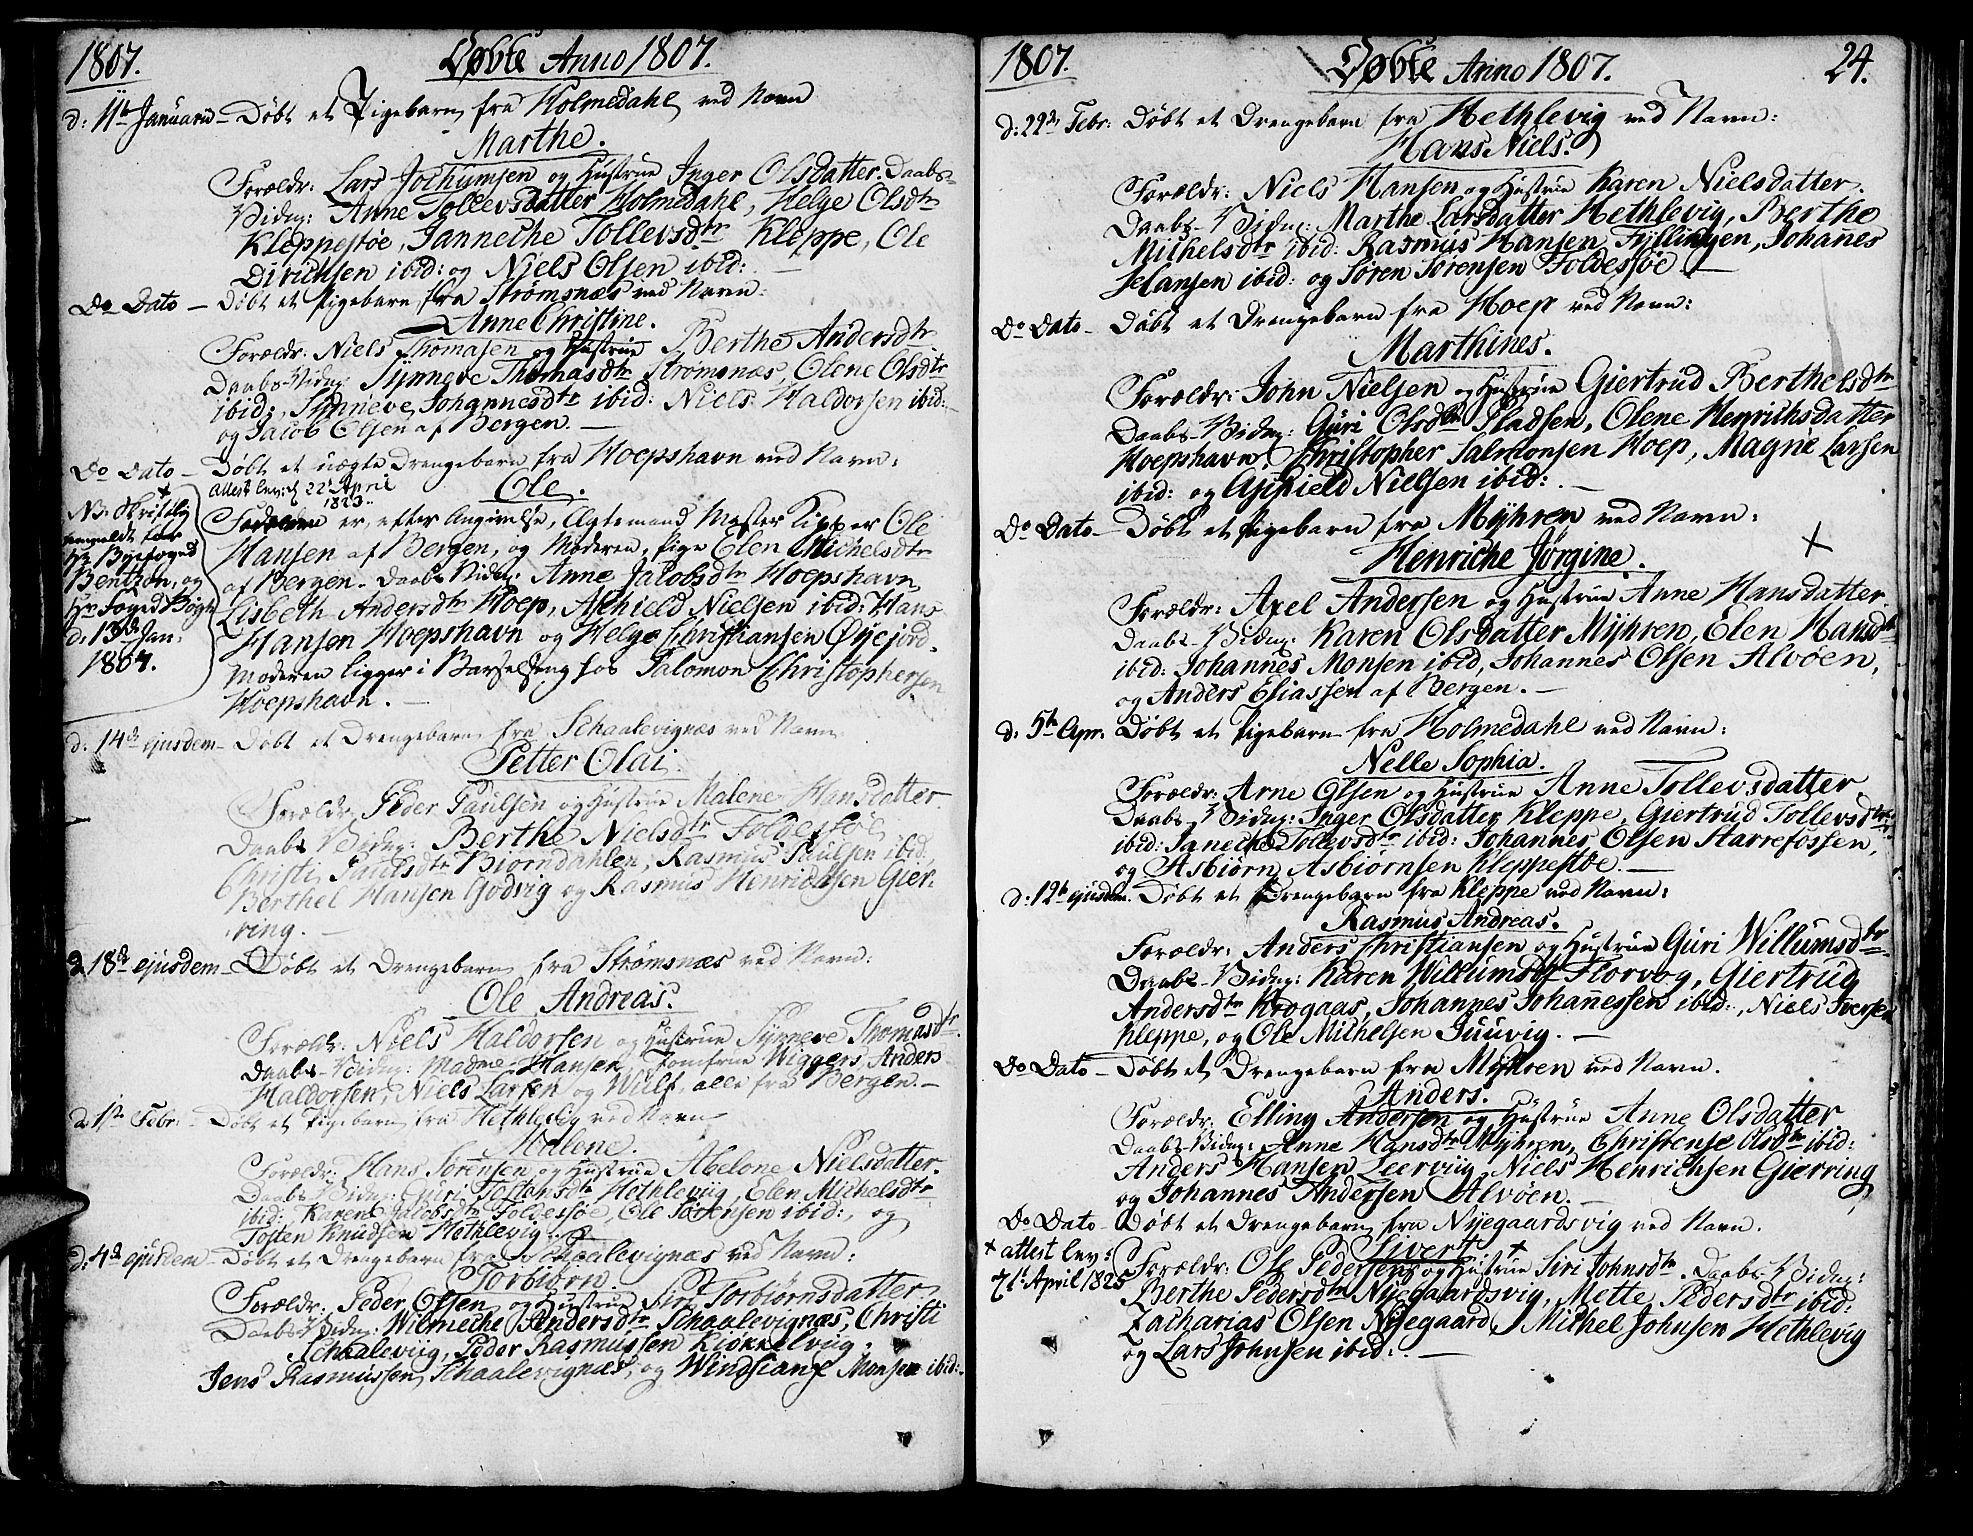 1807. Døbte Anno 1807.
d: 11te Januarii – Døbt et Pigebarn fra Holmedahl ved Navn
Marthe.
Forældr: Lars Jochumsen og Hustrue Inger Olsdatter. Daabs-
Vidn: Anne Tollevsdatter Holmedahl, Helge Olsdtr
Kleppestøe, Janneche Tollevsdtr Kleppe, Ole
Dirichsen ibid: og Niels Olsen ibid: –
Do Dato – Døbt et Pigebarn fra Strømsnæs ved Navn:
Anne Christine.
Forældr: Niels Thomasen og Hustrue Berthe Andersdtr
Daabs-Vidn: Synneve Thomasdtr Strømsnæs, Olene Olsdtr
ibid:, Synneve Johannesdtr ibid: Niels Haldorsen ibid:
og Jacob Olsen af Bergen. –
Do Dato – Døbt et uægte Drengebarn fra Hoepshavn ved Navn:
Attest lev: d 22 April
1823.
Ole.
NB: Skriftlig
anmeldt for
Hr Byefoged
Benthon, og
Hr Foged Bøgh
d: 13de Jan:
1807.
Faderen er, efter Angivelse, Ægtemand Mester Ole
Hansen af Bergen, og Moderen, Pige Elen Michelsdtr
af Bergen. Daabs Vidn: Anne Jacobsdtr Hoepshavn
Lisbeth Andersdtr Hoep, Aschield Nielsen ibid: Hans
Hansen Hoepshavn og Helge Christiansen Øyejord.
Moderen ligger i Barselseng hos Salomon Christophersen
Hoepshavn. –
d: 14de ejusdem – Døbt et Drengebarn fra Schaalevignæs ved Navn
Petter Olai.
Forældr: Peder Paulsen og Hustrue Malene Hansdatter.
Daabs Vidn: Berthe Nielsdtr Foldessøe,
Christi Paulsdtr Bjorndahlen, Rasmus Paulsen ibid,
Berthel Hansen Godvig og Rasmus Henrichsen Gier-
ring. –
d 18de ejusdem – Døbt et Drengebarn fra Strømsnæs ved Navn:
Ole Andreas.
Forældr: Niels Haldorsen og Hustrue Synneve Thomasdtr.
Daabs-Vidn: Madme Hansen, Jomfrue Wiggers, Anders
Haldorsen, Niels Larsen og Wulf alle fra Bergen. –
d 1ste Febr: – Døbt et Pigebarn fra Hethlevig ved Navn
Malene.
Forældr: Hans Sørensen og Hustrue Abelone Nielsdatter.
Daabs Vidn: Guri Tostensdtr Hethleviig, Elen Michelsdtr
ibid: Karen Jacobsdtr Foldessøe, Ole Sørensen ibid:, og
Tosten Knudsen Hethlevig. –
d: 4de ejusdem – Døbt et Drengebarn fra Schaalevignæs ved Navn:
Torbiørn.
Forældr: Peder Olsen og Hustrue Siri Torbiørnsdatter
Daabs Vidn: Wilmeche Andersdtr Schaalevignæs, Christi
Schaaleviig, Peder Rasmussen Klokkelviig.
Jens Rasmussen Schaalevignæs, og Windfiang Monsen ibid:.
1807. Døbte Anno 1807. 24.
d: 22de Febr: Døbt et Drengebarn fra Hethlevig ved Navn:
Hans Niels.
Forældr: Niels Hansen og Hustrue Karen Nielsdatter.
Daabs-Vidn: Marthe Larsdatter Hethlevig, Berthe
Michelsdtr ibid: Rasmus Hansen Fyllingen, Johanes
Hansen ibid: og Søren Sørensen Foldessøe. –
Do Dato – Døbt et Drengebarn fra Hoep ved Navn:
Marthines.
Forældr: John Nielsen og Hustrue Giertrud Berthelsdtr
Daabs-Vidn: Guri Olsdtr Pladsen, Olene Henrichsdatter
Hoepshavn, Christopher Salomonsen Hoep, Magne Larsen
ibid: og Aschield Nielsen ibid: –
Do Dato – Døbt et Pigebarn fra Myhren ved Navn:
Henriche Jørgine.
Forældr: Axel Andersen og Hustrue Anne Hansdatter
Daabs-Vidn: Karen Olsdatter Myhren, Elen Hansdtr
ibid: Johannes Monsen ibid, Johannes Olsen Alvøen,
og Anders Eliassen af Bergen. –
d: 5te Apr: Døbt et Pigebarn fra Holmedahl ved Navn:
Nelle Sophia.
Forældr: Arne Olsen og Hustrue Anne Tollevsdatter.
Daabs-Vidn: Inger Olsdatter Kleppe, Giertrud Tollevsdtr
ibid: Janeche Tollevsdtr ibid: Johannes Olsen Starrefossen,
og Asbiørn Asbiørnsen Kleppestøe. –
d: 12te ejusdem. Døbt et Drengebarn fra Kleppe ved Navn:
Rasmus Andreas.
Forældr: Anders Christiansen og Hustrue Guri Willumsdtr
Daabs-Vidn: Karen Willumsdtr Florvog, Giertrud
Andersdtr Krogaas, Johannes Johanessen ibid:, Niels Iversen
Kleppe, og Ole Michelsen Juuvig. –
Do Dato – Døbt et Drengebarn fra Myhren ved Navn.
Anders.
Forældr: Elling Andersen og Hustrue Anne Olsdatter
Daabs Vidn: Anne Hansdtr Myhren, Christense Olsdtr ibid:
Anders Hansen Leerviig, Niels Henrichsen Gierring
og Johannes Andersen Alvøen. –
Do Dato – Døbt et Drengebarn fra Nyegaardsvig ved Navn.
Sivert
+ attest lev:
7de April 1825
Forældr: Ole Pedersen og Hustrue Siri Johnsdtr. Daabs-Vidn:
Berthe Pedersdtr Nyegaardsvig, Mette Pedersdtr ibid:
Zacharias Olsen Nyegaard, Michel Johnsen Hethlevig
og Lars Johnsen ibid: –